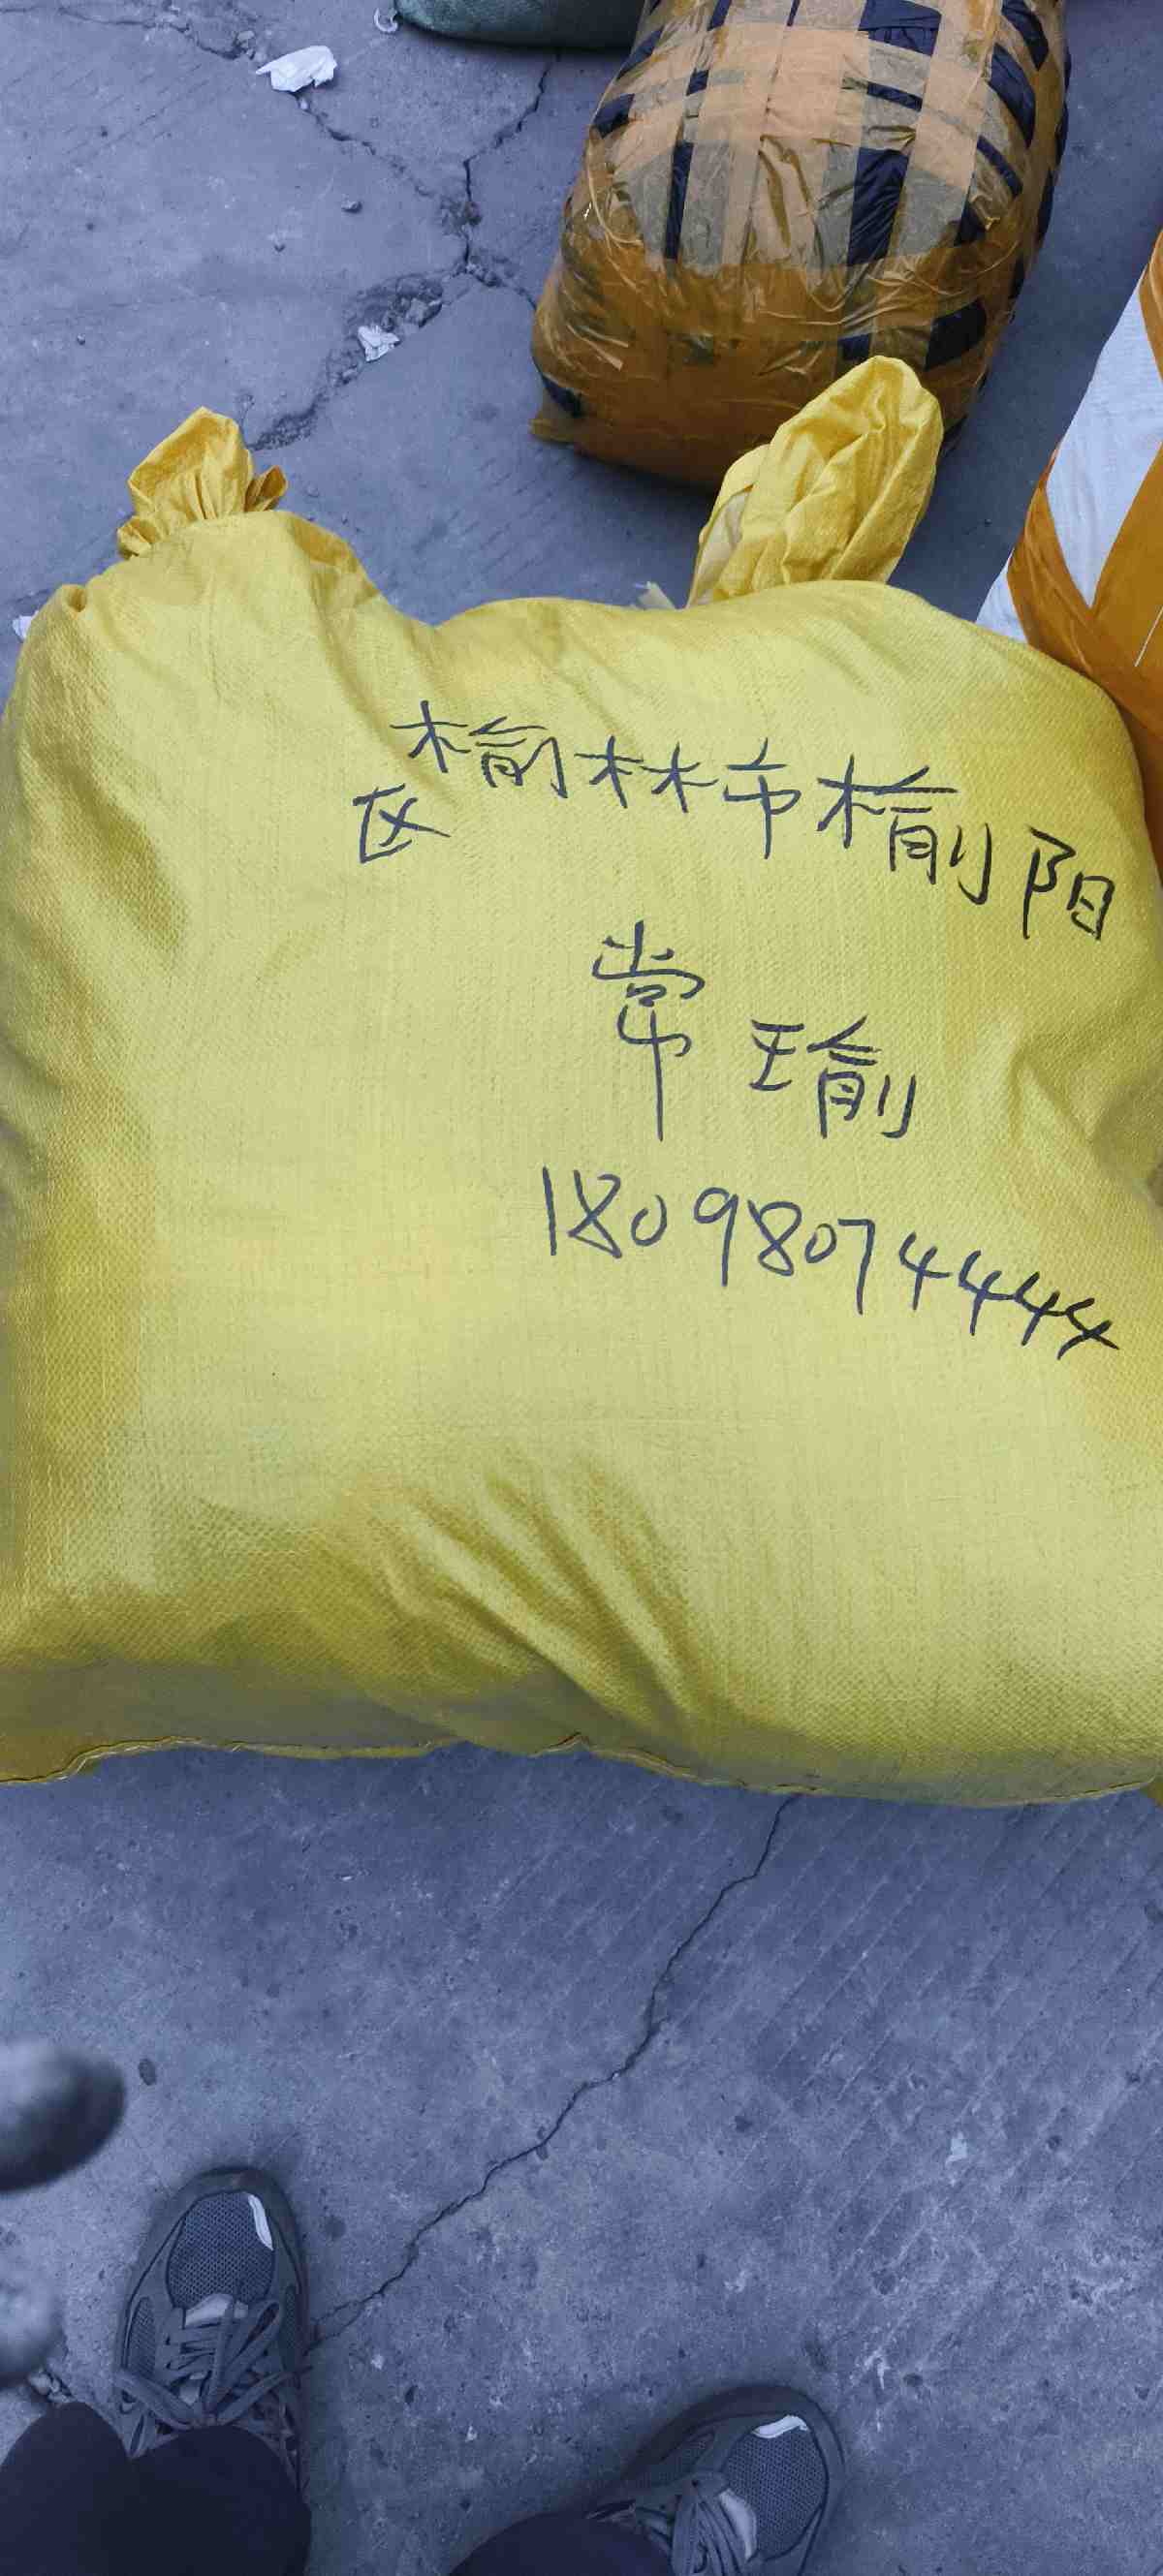 榆林市榆阳
区
常瑜
18098074444